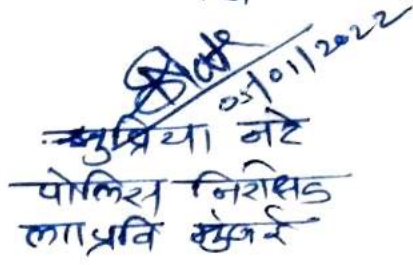 05/01/2022
सुप्रिया नटे
पोलिस निरीक्षक
लाप्रवि मुंबई